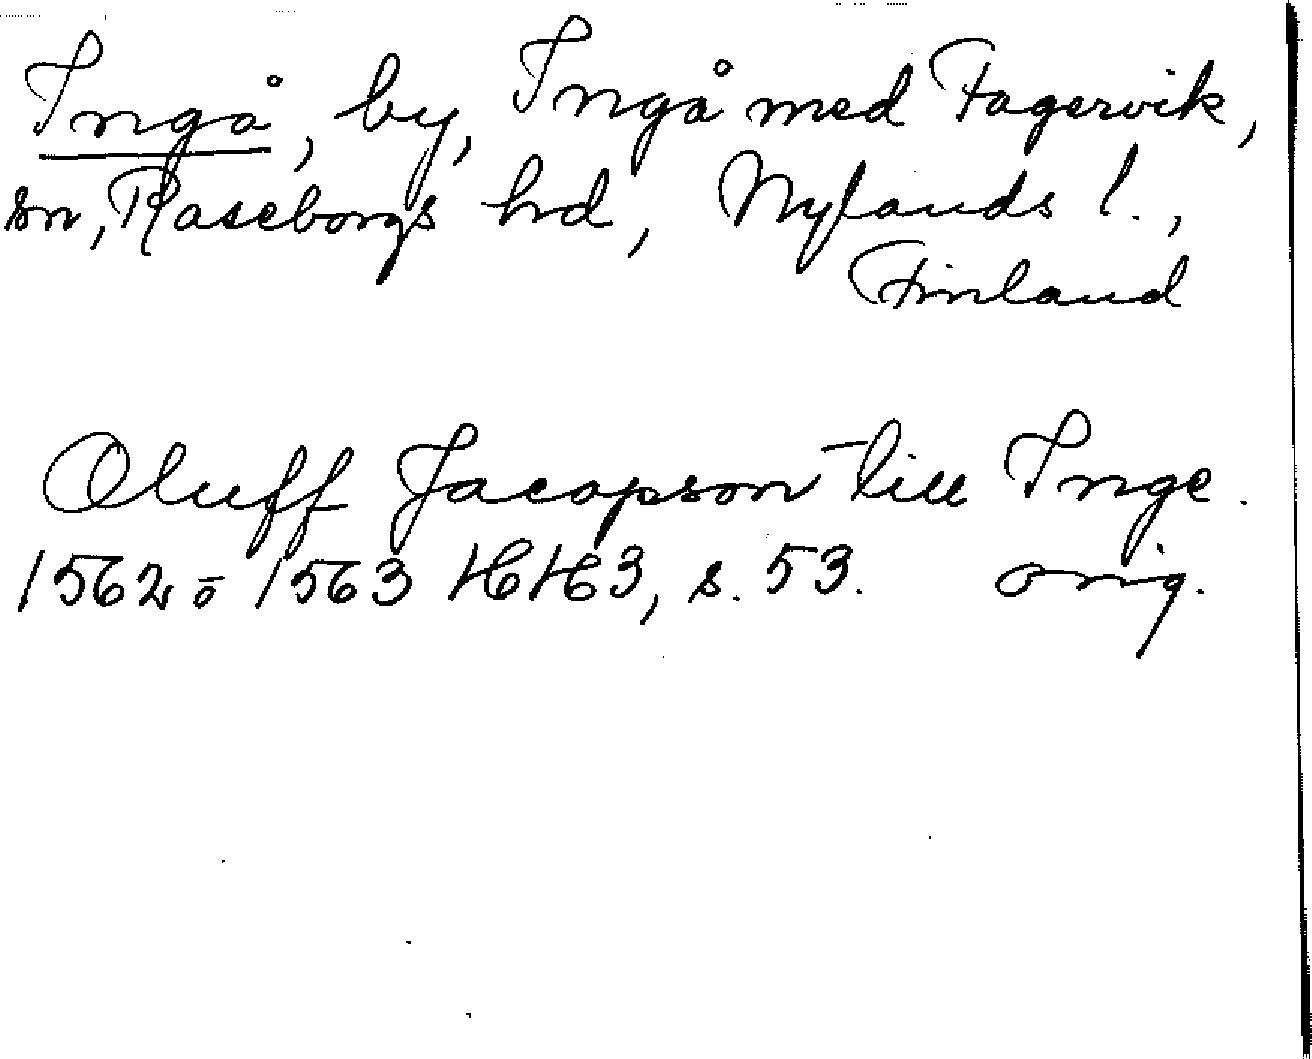 Ingå, by, Ingå med Fagervik,
sn, Raseborgs hd, Nylands l.,
Finland
Oluff Jacopson till Inge.
1562 ō 1563 HH3, s. 53. orig.